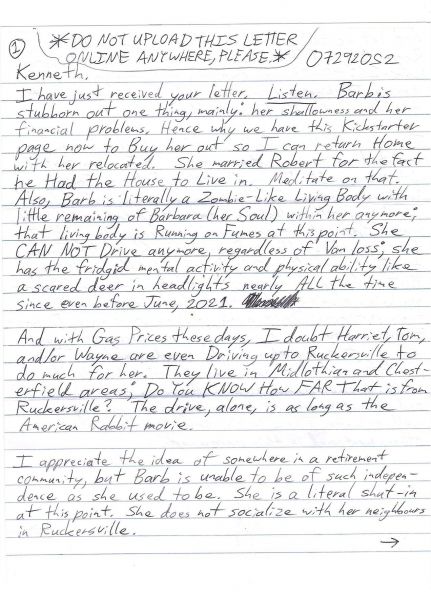 ① *DO NOT UPLOAD THIS LETTER
ONLINE ANYWHERE, PLEASE.* 072920S2
Kenneth,
I have just received your letter. Listen. Barb is
stubborn out one thing, mainly: her shallowness and her
financial problems. Hence why we have this Kickstarter
page now to Buy her out so I can return Home
with her relocated. She married Robert for the fact
he Had the House to Live in. Meditate on that.
Also, Barb is literally a Zombie-Like Living Body with
little remaining of Barbara (her Soul) within her anymore;
that living body is Running on Fumes at this point. She
CAN NOT Drive anymore, regardless of Van loss; she
has the fridgid mental activity and physical ability like
a scared deer in headlights nearly ALL the time
since even before June, 2021.
And with Gas Prices these days, I doubt Harriet, Tom,
and/or Wayne are even Driving up to Ruckersville to
do much for her. They live in Midlothian and Chest-
erfield areas; Do YOU KNOW How FAR That is from
Ruckersville? The drive, alone, is as long as the
American Rabbit movie.
I appreciate the idea of somewhere in a retirement
community, but Barb is unable to be of such indepen-
dence as she used to be. She is a literal shut-in
at this point. She does not socialize with her neighbours
in Ruckersville.
→